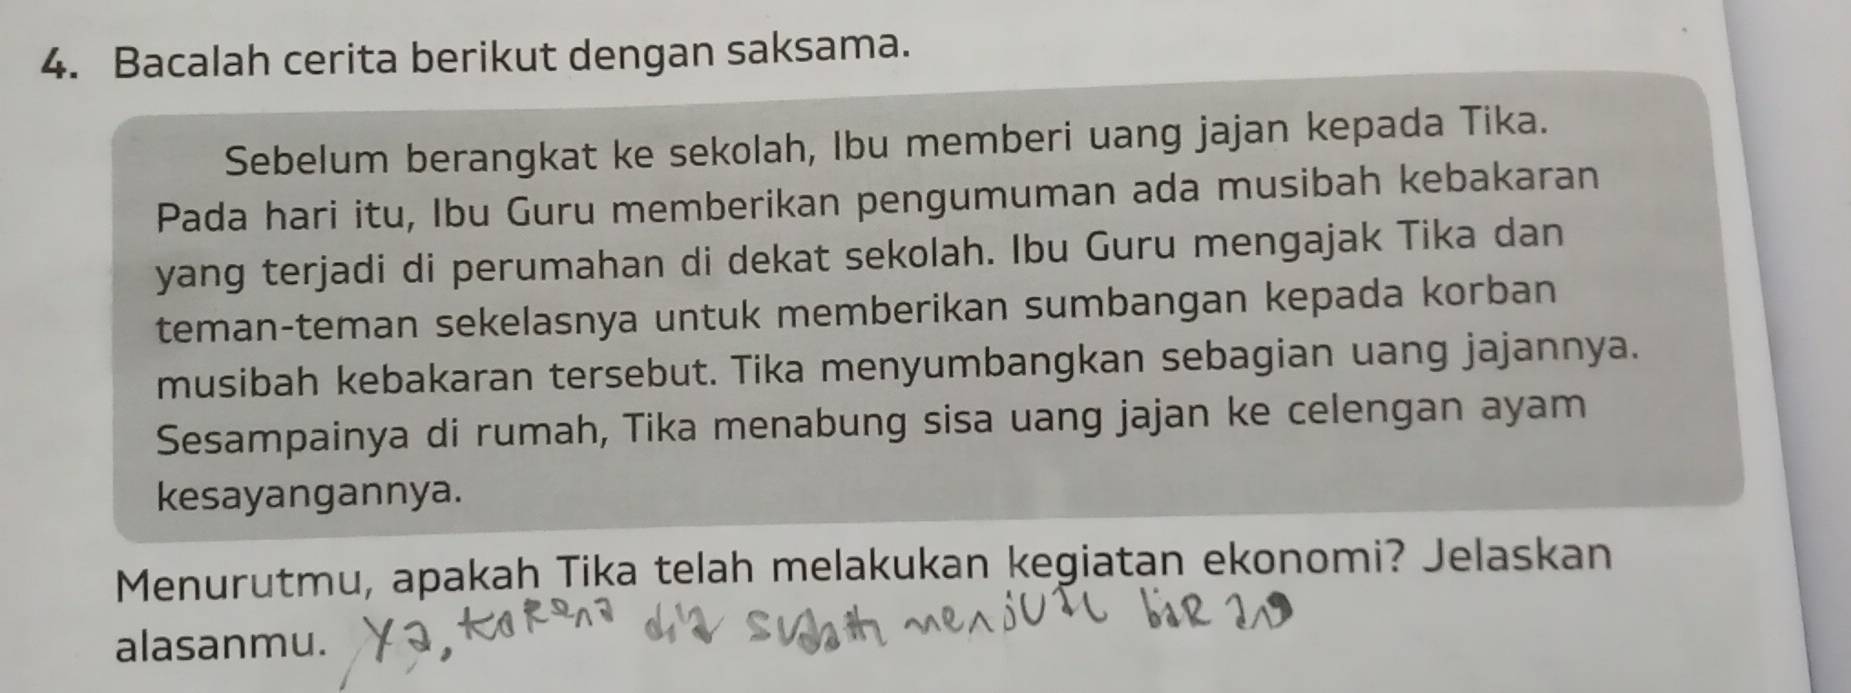 4. Bacalah cerita berikut dengan saksama.
Sebelum berangkat ke sekolah, Ibu memberi uang jajan kepada Tika.
Pada hari itu, Ibu Guru memberikan pengumuman ada musibah kebakaran
yang terjadi di perumahan di dekat sekolah. Ibu Guru mengajak Tika dan
teman-teman sekelasnya untuk memberikan sumbangan kepada korban
musibah kebakaran tersebut. Tika menyumbangkan sebagian uang jajannya.
Sesampainya di rumah, Tika menabung sisa uang jajan ke celengan ayam
kesayangannya.
Menurutmu, apakah Tika telah melakukan kegiatan ekonomi? Jelaskan
alasanmu. Ya, karena dia sudah menjual barang